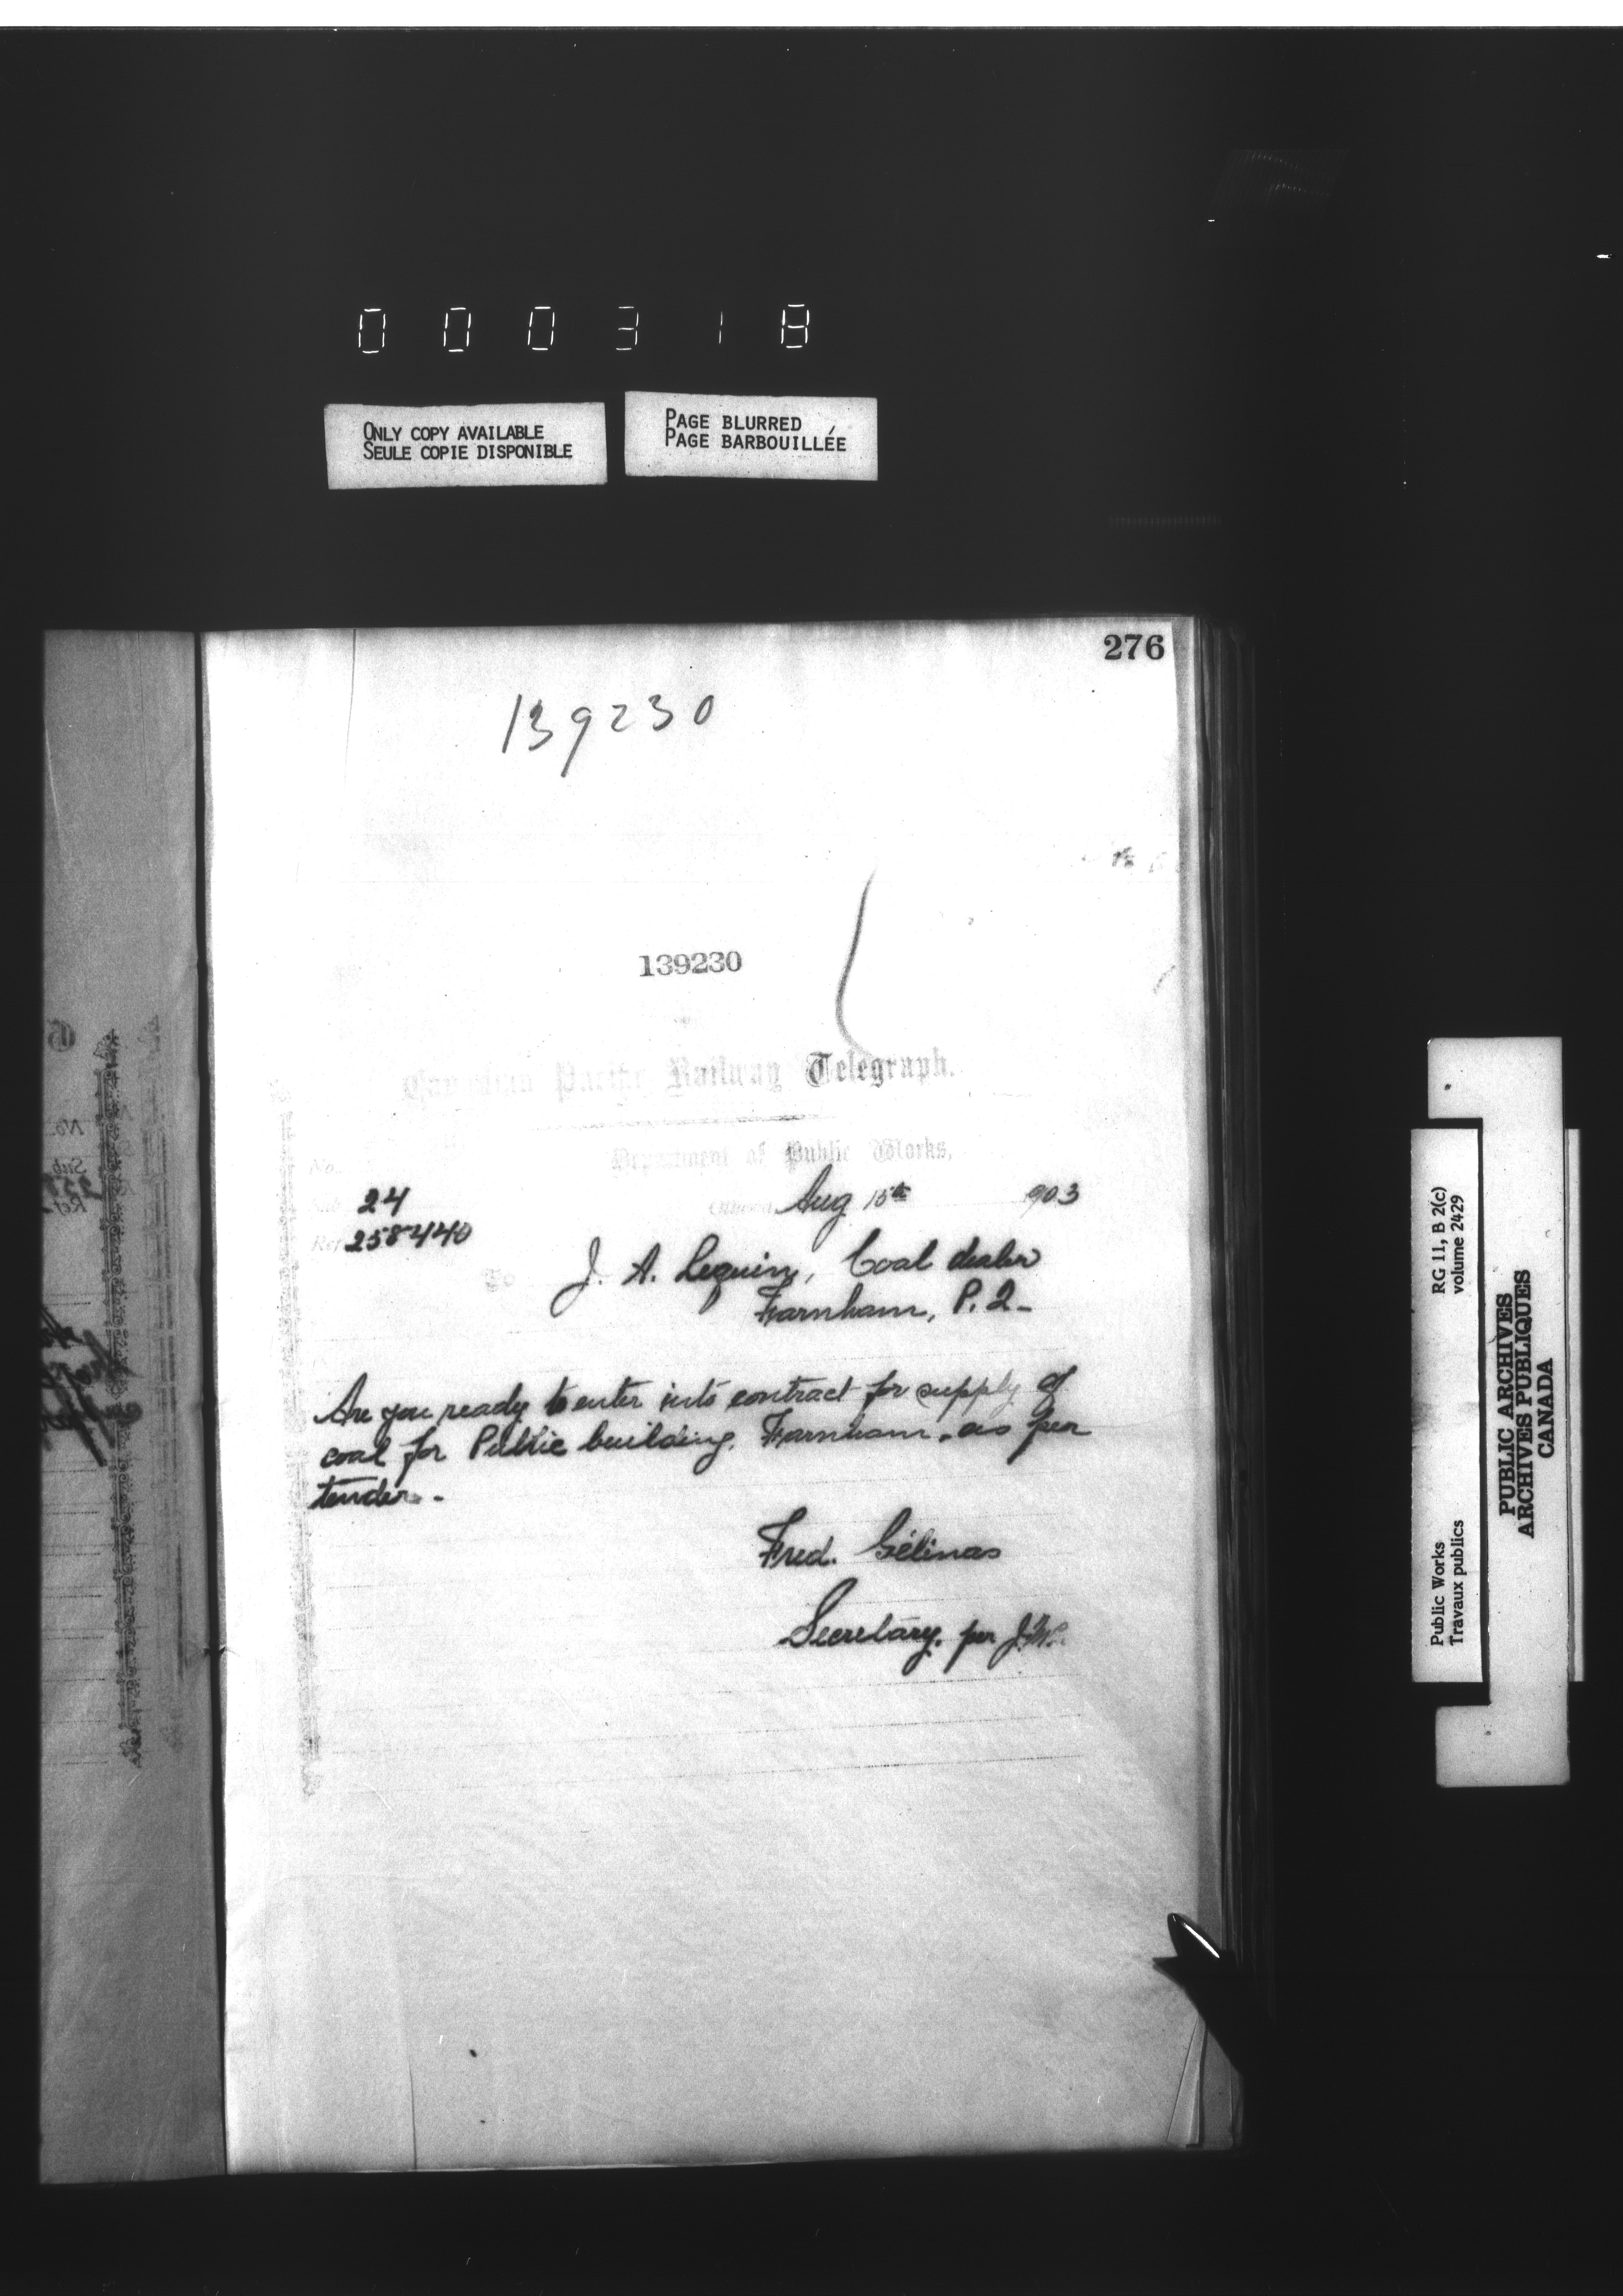 000318
ONLY COPY AVAILABLE
SEULE COPIE DISPONIBLE
PAGE BLURRED
PAGE BARBOUILLÉE
276
139230
139230
Canadian Pacific Railway Telegraph.
Department of Public Works,
No.
Sub. 24
Ottawa, Aug 15th 903
Ref. 258440
To J. A. Lequin, Coal dealer
Farnham, P. Q.
Are you ready to enter into contract for supply of
coal for Public building, Farnham, as per
tender.
Fred. Gélinas
Secretary. per
Public Works
Travaux publics
RG 11, B 2(c)
volume 2429
PUBLIC ARCHIVES
ARCHIVES PUBLIQUES
CANADA